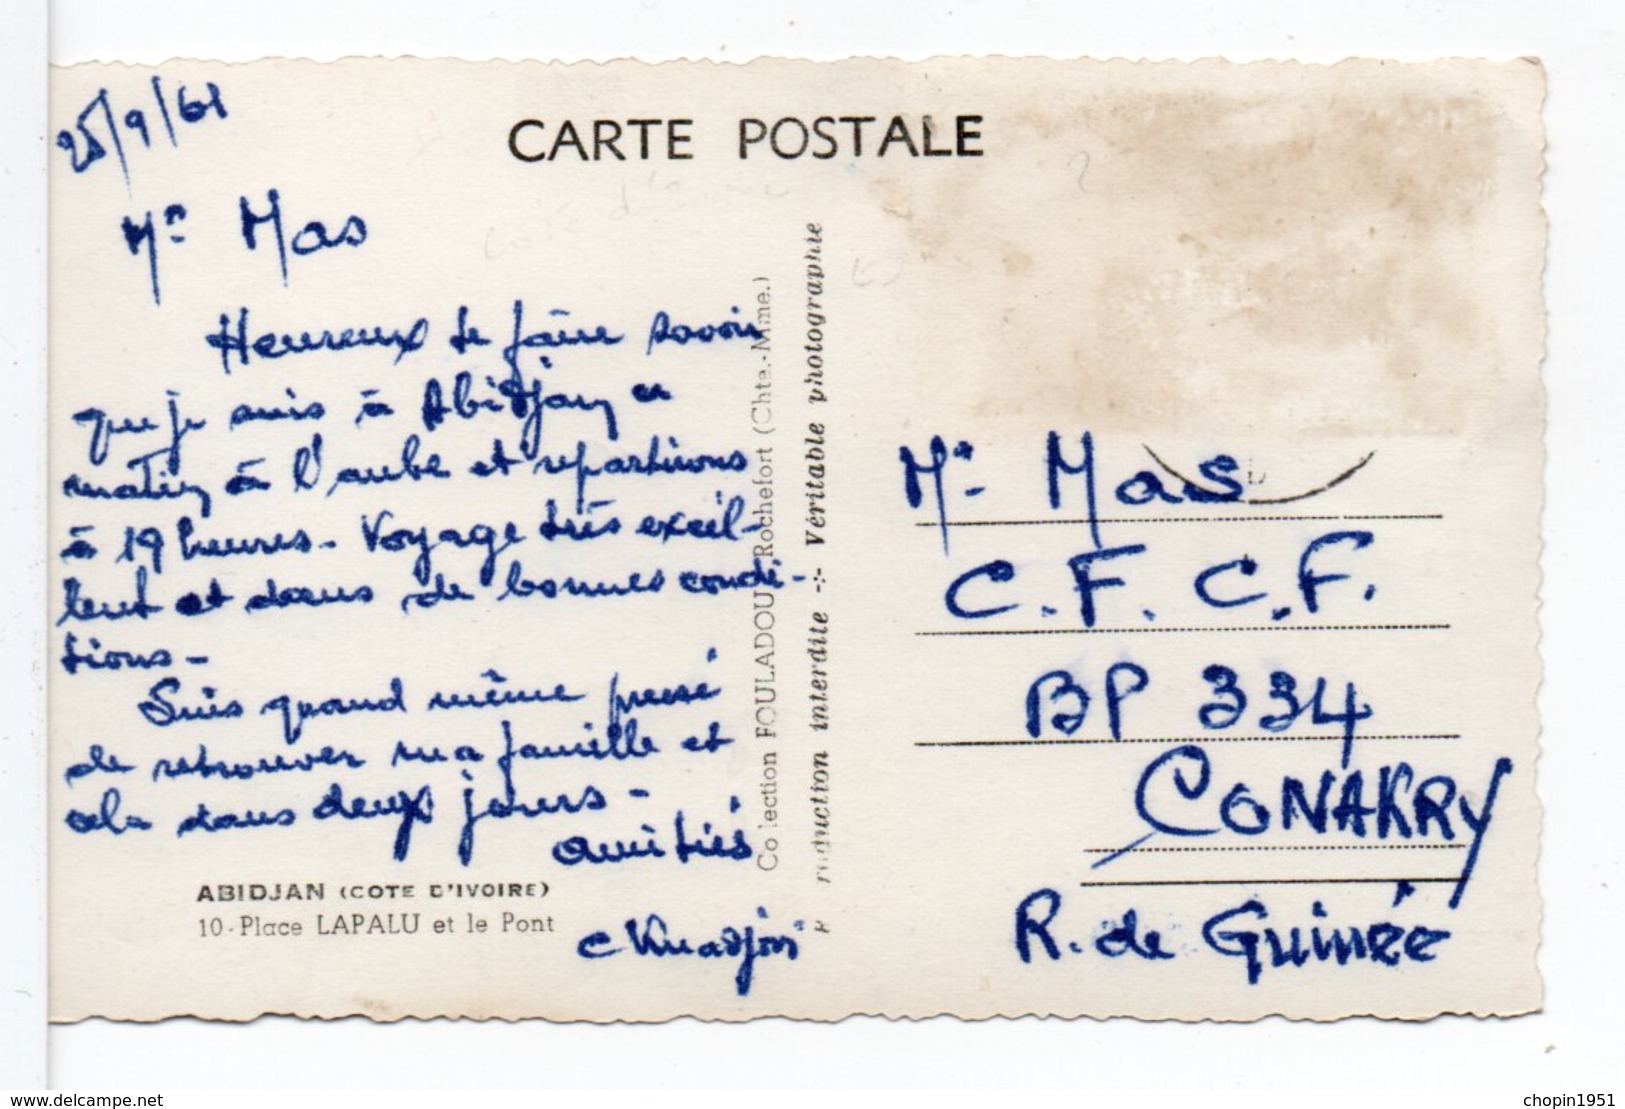 25/9/61
CARTE POSTALE
Mr Mas
Heureux de faire savoir
que je suis à Abidjan ce
matin à l'aube et repartirons
à 19 heures - Voyage très excel-
lent et dans de bonnes condi-
tions -
Suis quand même pressé
de retrouver ma famille et
cela dans deux jours -
amitiés
ABIDJAN (COTE D'IVOIRE)
10 - Place LAPALU et le Pont
Collection FOULADOU Rochefort (Chte.-Mme.)
reproduction interdite -:- Véritable photographie
Mr - Mas
C.F.C.F.
BP 334
CONAKRY
R. de Guinée
delcampe.net
chopin1951